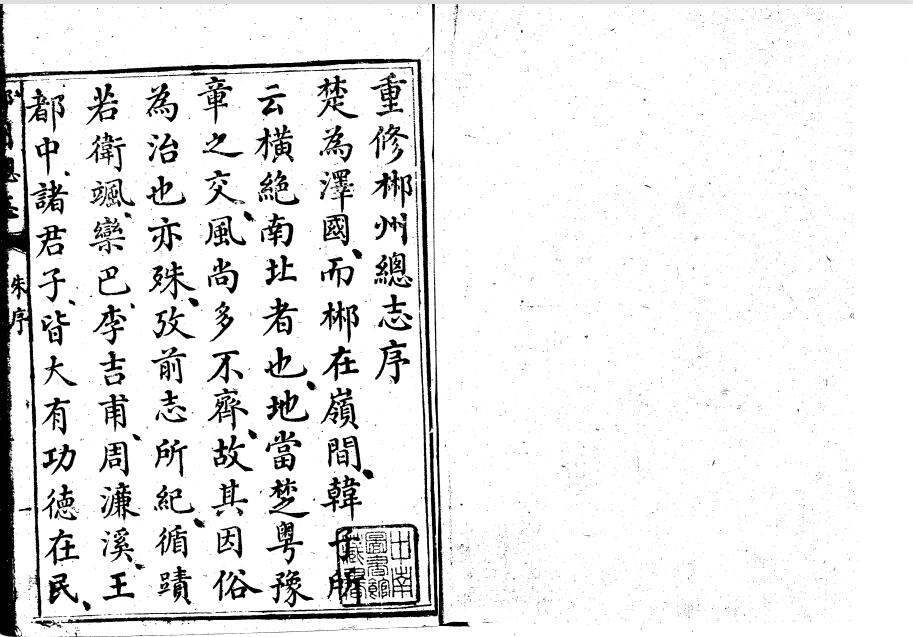 重修郴州總志序
楚為澤國、而郴在嶺間、韓子所
云橫絶南北者也、地當楚粤豫
章之交、風尚多不齊、故其因俗
為治也亦殊、攷前志所紀、循蹟
若衛颯、欒巴、李吉甫、周濂溪、王
都中、諸君子、皆大有功德在民、
總志
朱序
一
南
圖書館
藏書